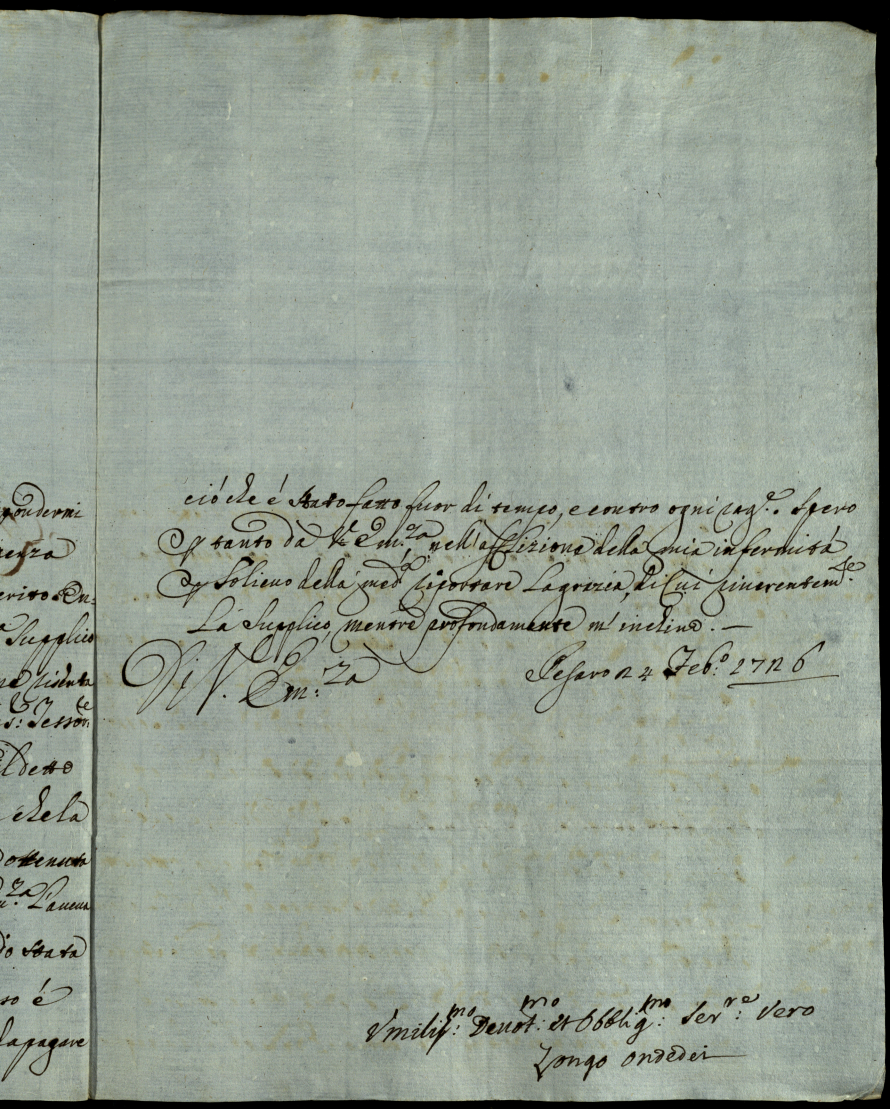 ponderni
enza
erito
Supplico
Lesson:
l detto
che la
ottenuta
L'aveva
io stata
so é
la pagare
ció che é stato fatto fuor di tempo, e contro ogni rag.e. Spero
p tanto da V. Em.za nell'afflizione della mia infermitá
p Solieuo della med.a riportare La grazia, di Cui riuerentem.te
La Supplico, mentre profondamente m'inchino. —
Di V. Em.za Pesaro 24 Feb.o 1726
Vmiliss.mo: Deuot.mo: et Obblig.mo: Ser.re: Vero
Zongo Ondedei